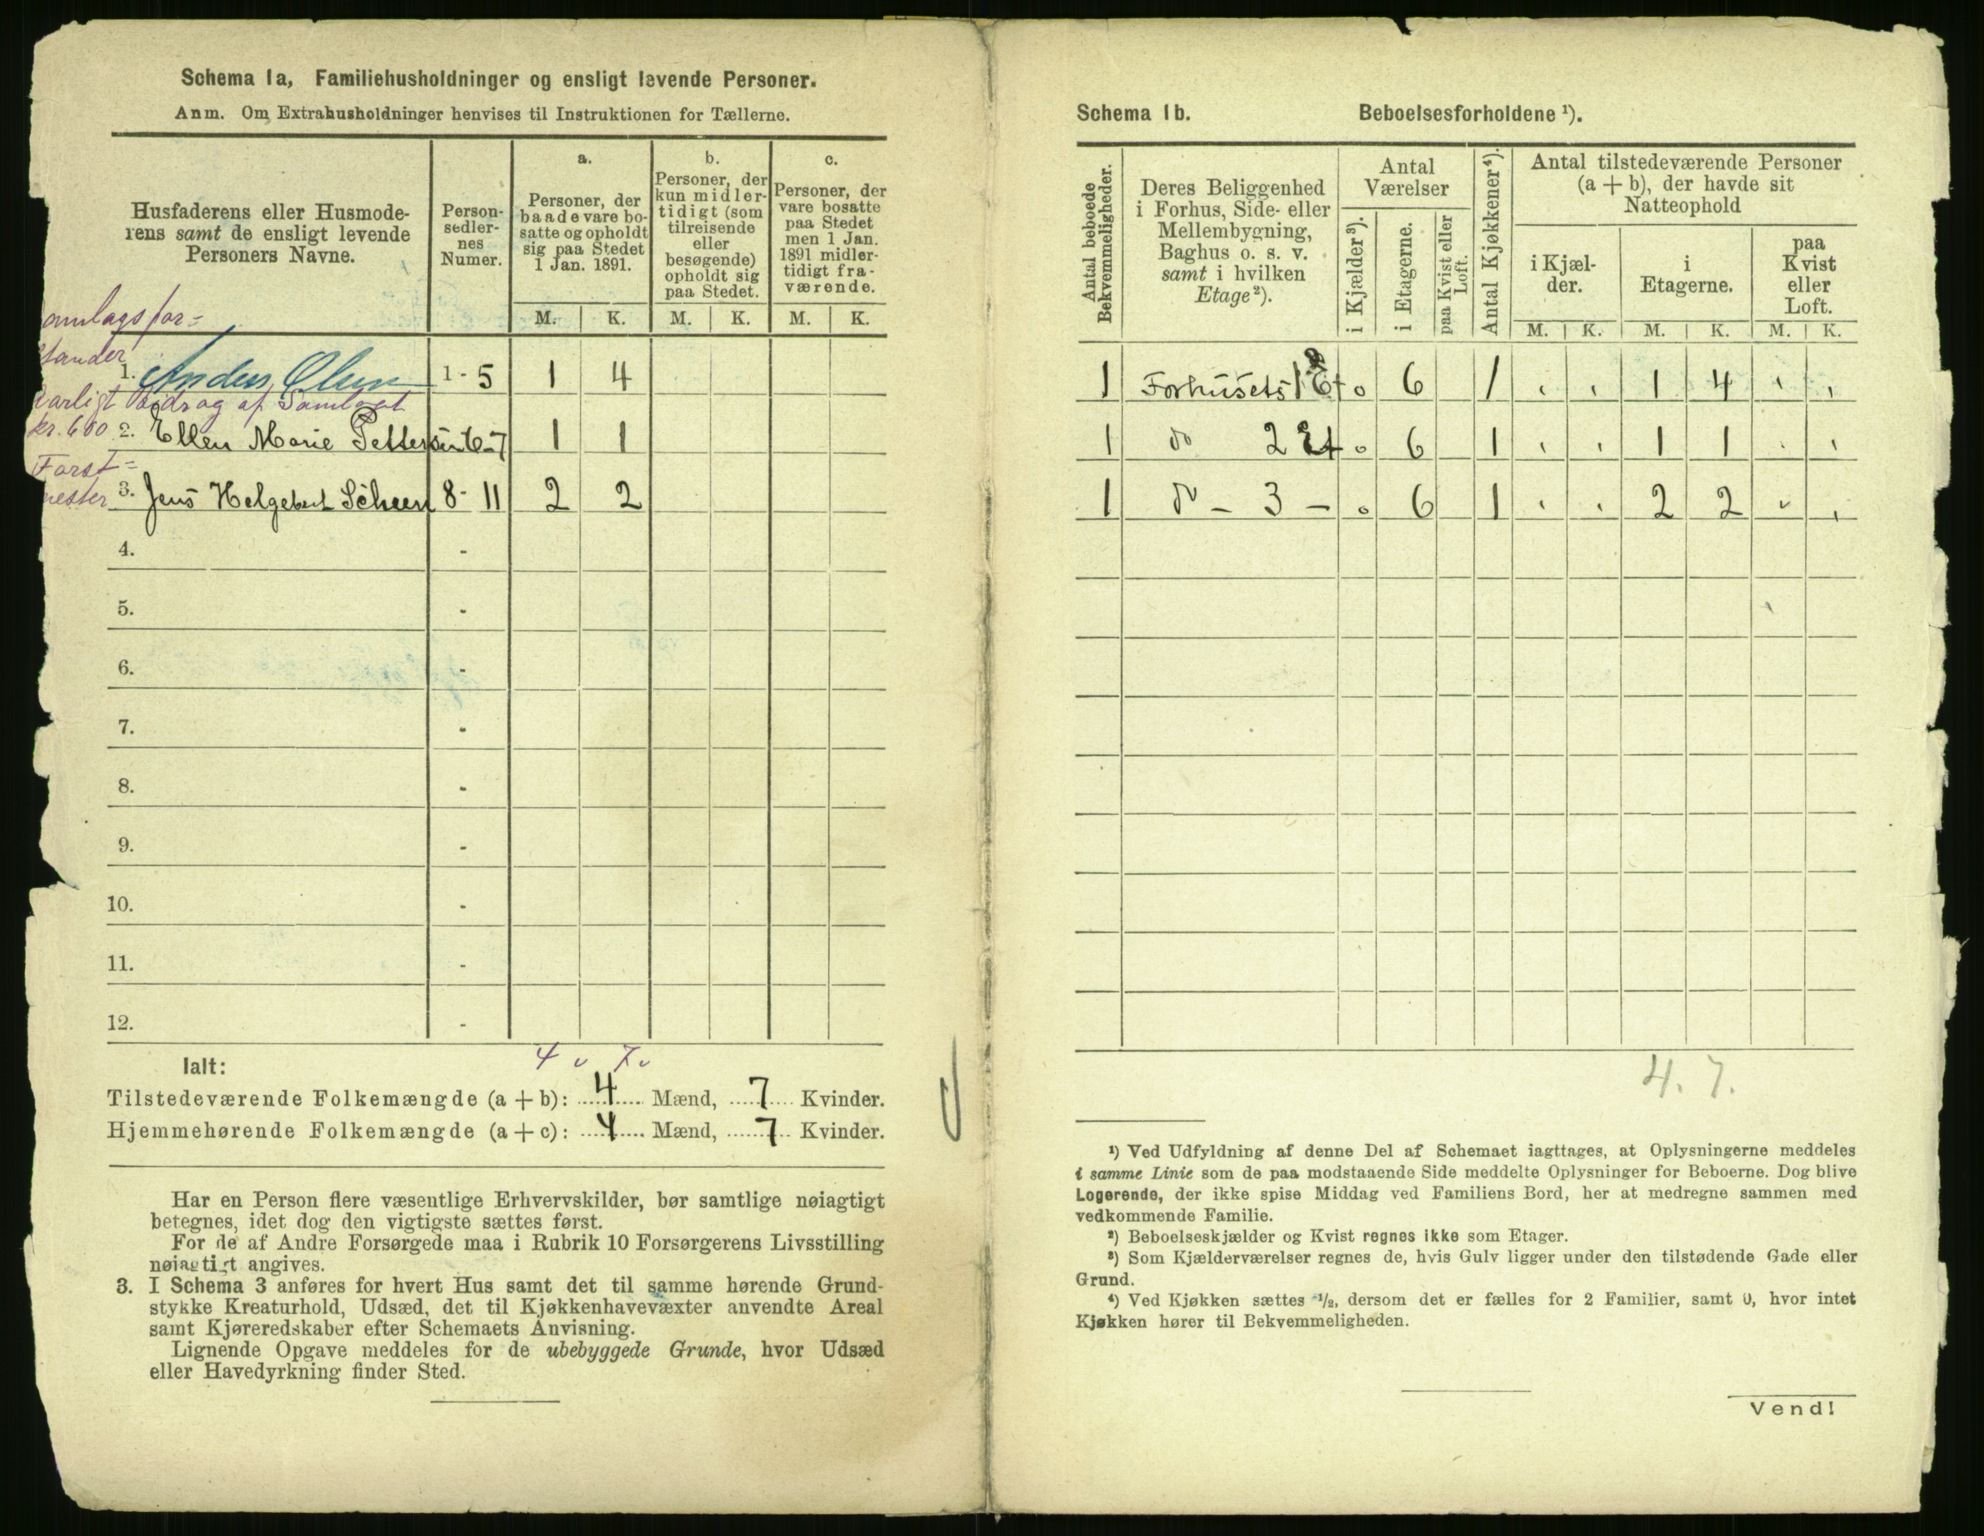 Schema 1a, Familiehusholdninger og ensligt levende Personer.
Anm. Om Extrahusholdninger henvises til Instruktionen for Tællerne.
Husfaderens eller Husmode-
rens samt de ensligt levende
Personers Navne.
Person-
sedler-
nes
Numer.
a.
Personer, der
baade vare bo-
satte og opholdt
sig paa Stedet
1 Jan. 1891.
b.
Personer, der
kun midler-
tidigt (som
tilreisende
eller
besøgende)
opholdt sig
paa Stedet.
c.
Personer, der
vare bosatte
paa Stedet
men 1 Jan.
1891 midler-
tidigt fra-
værende.
M. K. M. K. M. K.
amlagsfor=
stander
1. Anders Olsen 1 - 5 1 4
aarligt Bidrag af Samlaget
kr. 600 2. Ellen Marie Pettersen 6-7 1 1
Forst=
mester 3. Jens Helgebert Scheen 8 - 11 2 2
4. -
5. -
6. -
7. -
8. -
9. -
10. -
11. -
12. -
4 v 7 v
Ialt:
Tilstedeværende Folkemængde (a + b): 4 Mænd, 7 Kvinder.
Hjemmehørende Folkemængde (a + c): 4 Mænd, 7 Kvinder.
Har en Person flere væsentlige Erhvervskilder, bør samtlige nøiagtigt
betegnes, idet dog den vigtigste sættes først.
For de af Andre Forsørgede maa i Rubrik 10 Forsørgerens Livsstilling
nøiagtigt angives.
3. I Schema 3 anføres for hvert Hus samt det til samme hørende Grund-
stykke Kreaturhold, Udsæd, det til Kjøkkenhavevæxter anvendte Areal
samt Kjøreredskaber efter Schemaets Anvisning.
Lignende Opgave meddeles for de ubebyggede Grunde, hvor Udsæd
eller Havedyrkning finder Sted.
Schema 1b. Beboelsesforholdene ¹).
Antal beboede
Bekvemmeligheder.
Deres Beliggenhed
i Forhus, Side- eller
Mellembygning,
Baghus o. s. v.
samt i hvilken
Etage²).
Antal
Værelser
i Kjælder³).
i Etagerne.
paa Kvist eller
Loft.
Antal Kjøkkener⁴).
Antal tilstedeværende Personer
(a + b), der havde sit
Natteophold
i Kjæl-
der.
i
Etagerne.
paa
Kvist
eller
Loft.
M. K. M. K. M. K.
1 Forhusets 1 Et o 6 1 , , 1 4 , ,
1 do 2 Et o 6 1 , , 1 1 , ,
1 do - 3 - o 6 1 , , 2 2 , ,
4. 7.
¹) Ved Udfyldning af denne Del af Schemaet iagttages, at Oplysningerne meddeles
i samme Linie som de paa modstaaende Side meddelte Oplysninger for Beboerne. Dog blive
Logerende, der ikke spise Middag ved Familiens Bord, her at medregne sammen med
vedkommende Familie.
²) Beboelseskjælder og Kvist regnes ikke som Etager.
³) Som Kjælderværelser regnes de, hvis Gulv ligger under den tilstødende Gade eller
Grund.
⁴) Ved Kjøkken sættes ¹/₂, dersom det er fælles for 2 Familier, samt 0, hvor intet
Kjøkken hører til Bekvemmeligheden.
Vend!